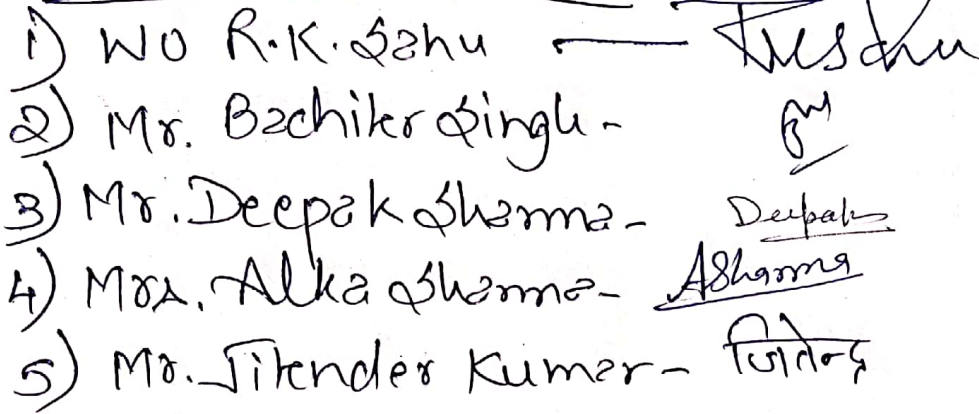 1) WO R.K. Sahu —
2) Mr. Bachiker Singh -
3) Mr. Deepak Sharma - Deepak
4) Mrs. Alka Sharma - ASharma
5) Mr. Jitender Kumar - जितेन्द्र